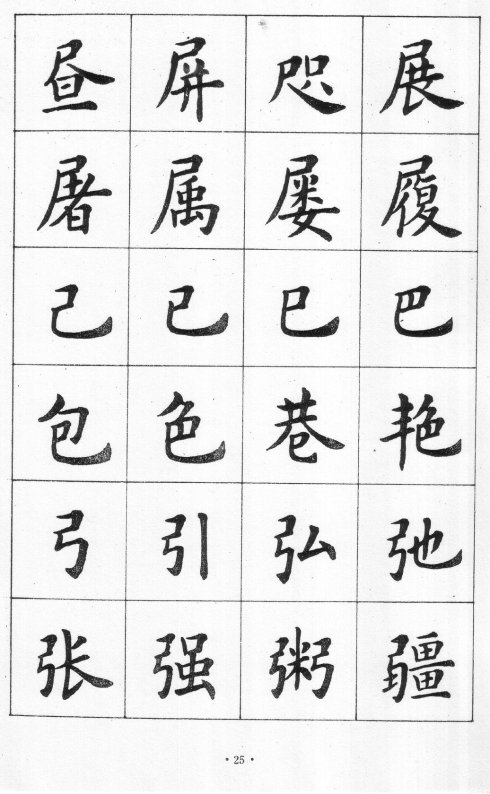 昼 屏 咫 展
屠 属 屡 履
己 已 巳 巴
包 色 巷 艳
弓 引 弘 弛
张 强 粥 疆
· 25 ·